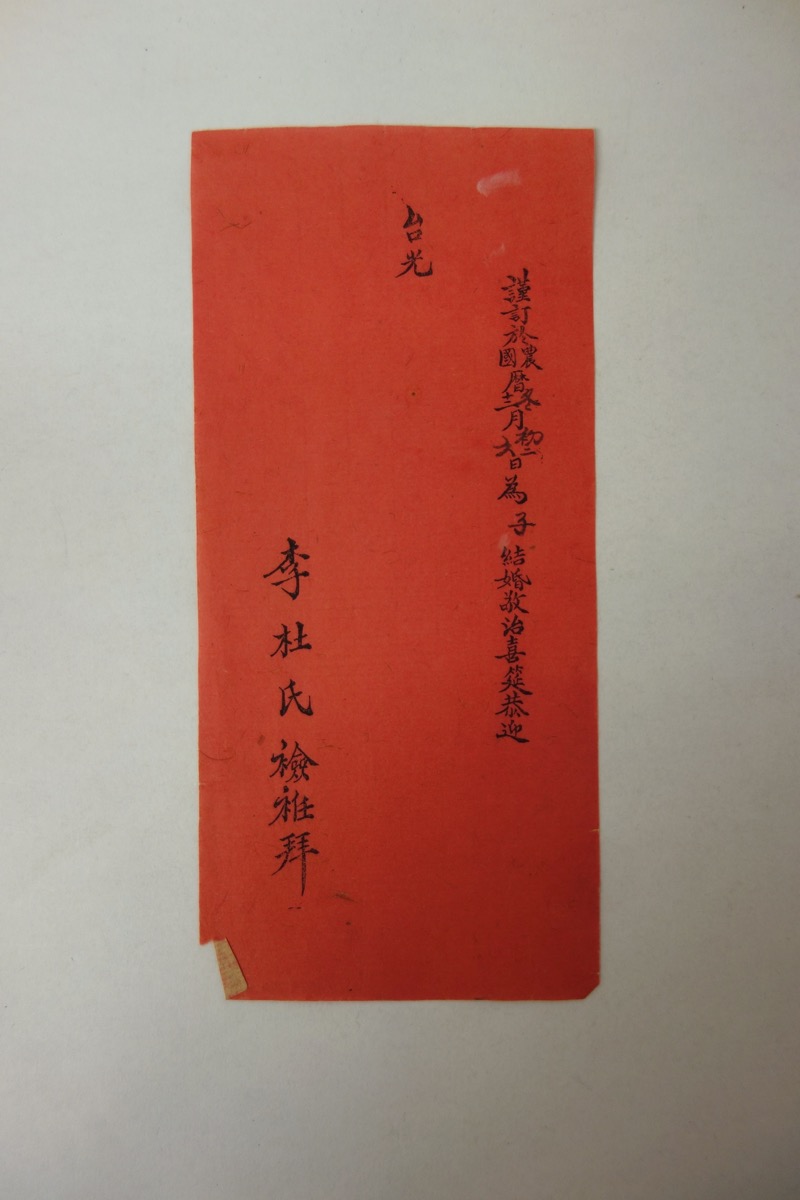 謹訂於農國曆冬十二月初二六日為子結婚敬治喜筵恭迎
台光
李杜氏襝衽拜